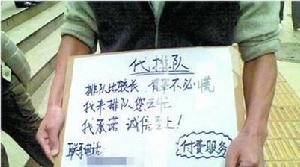 代排队
排队比较长 有事不必慌
我来排队您去忙
我承诺 诚信至上!
联系电话
付费服务